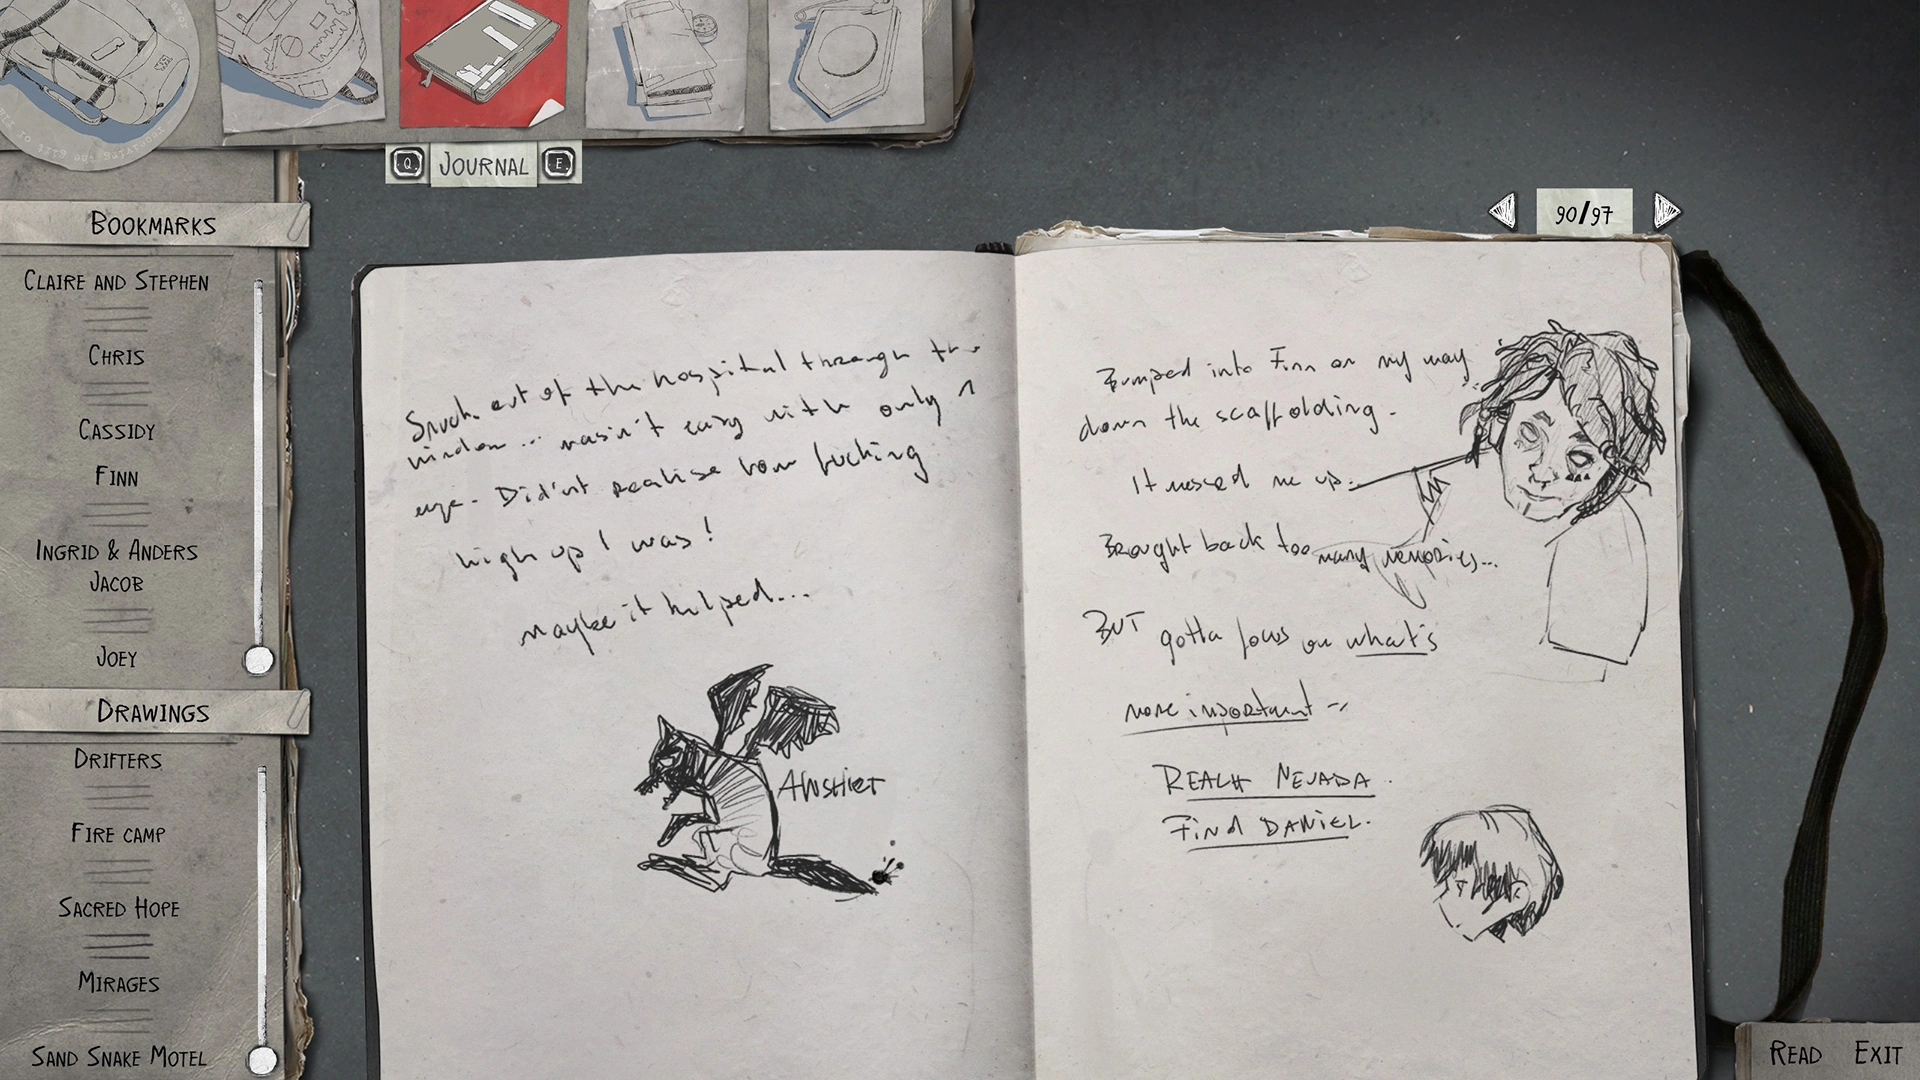 Q JOURNAL E
BOOKMARKS
CLAIRE AND STEPHEN
CHRIS
CASSIDY
FINN
INGRID & ANDERS
JACOB
JOEY
DRAWINGS
DRIFTERS
FIRE CAMP
SACRED HOPE
MIRAGES
SAND SNAKE MOTEL
90/97
Snuck out of the hospital through the
window... wasn't easy with only 1
eye. Didn't realise how fucking
high up I was!
Maybe it helped...
Bumped into Finn on my way
down the scaffolding.
It messed me up.
Brought back too many memories...
BUT gotta focus on what's
more important --
REACH NEVADA.
Find DANIEL.
READ EXIT